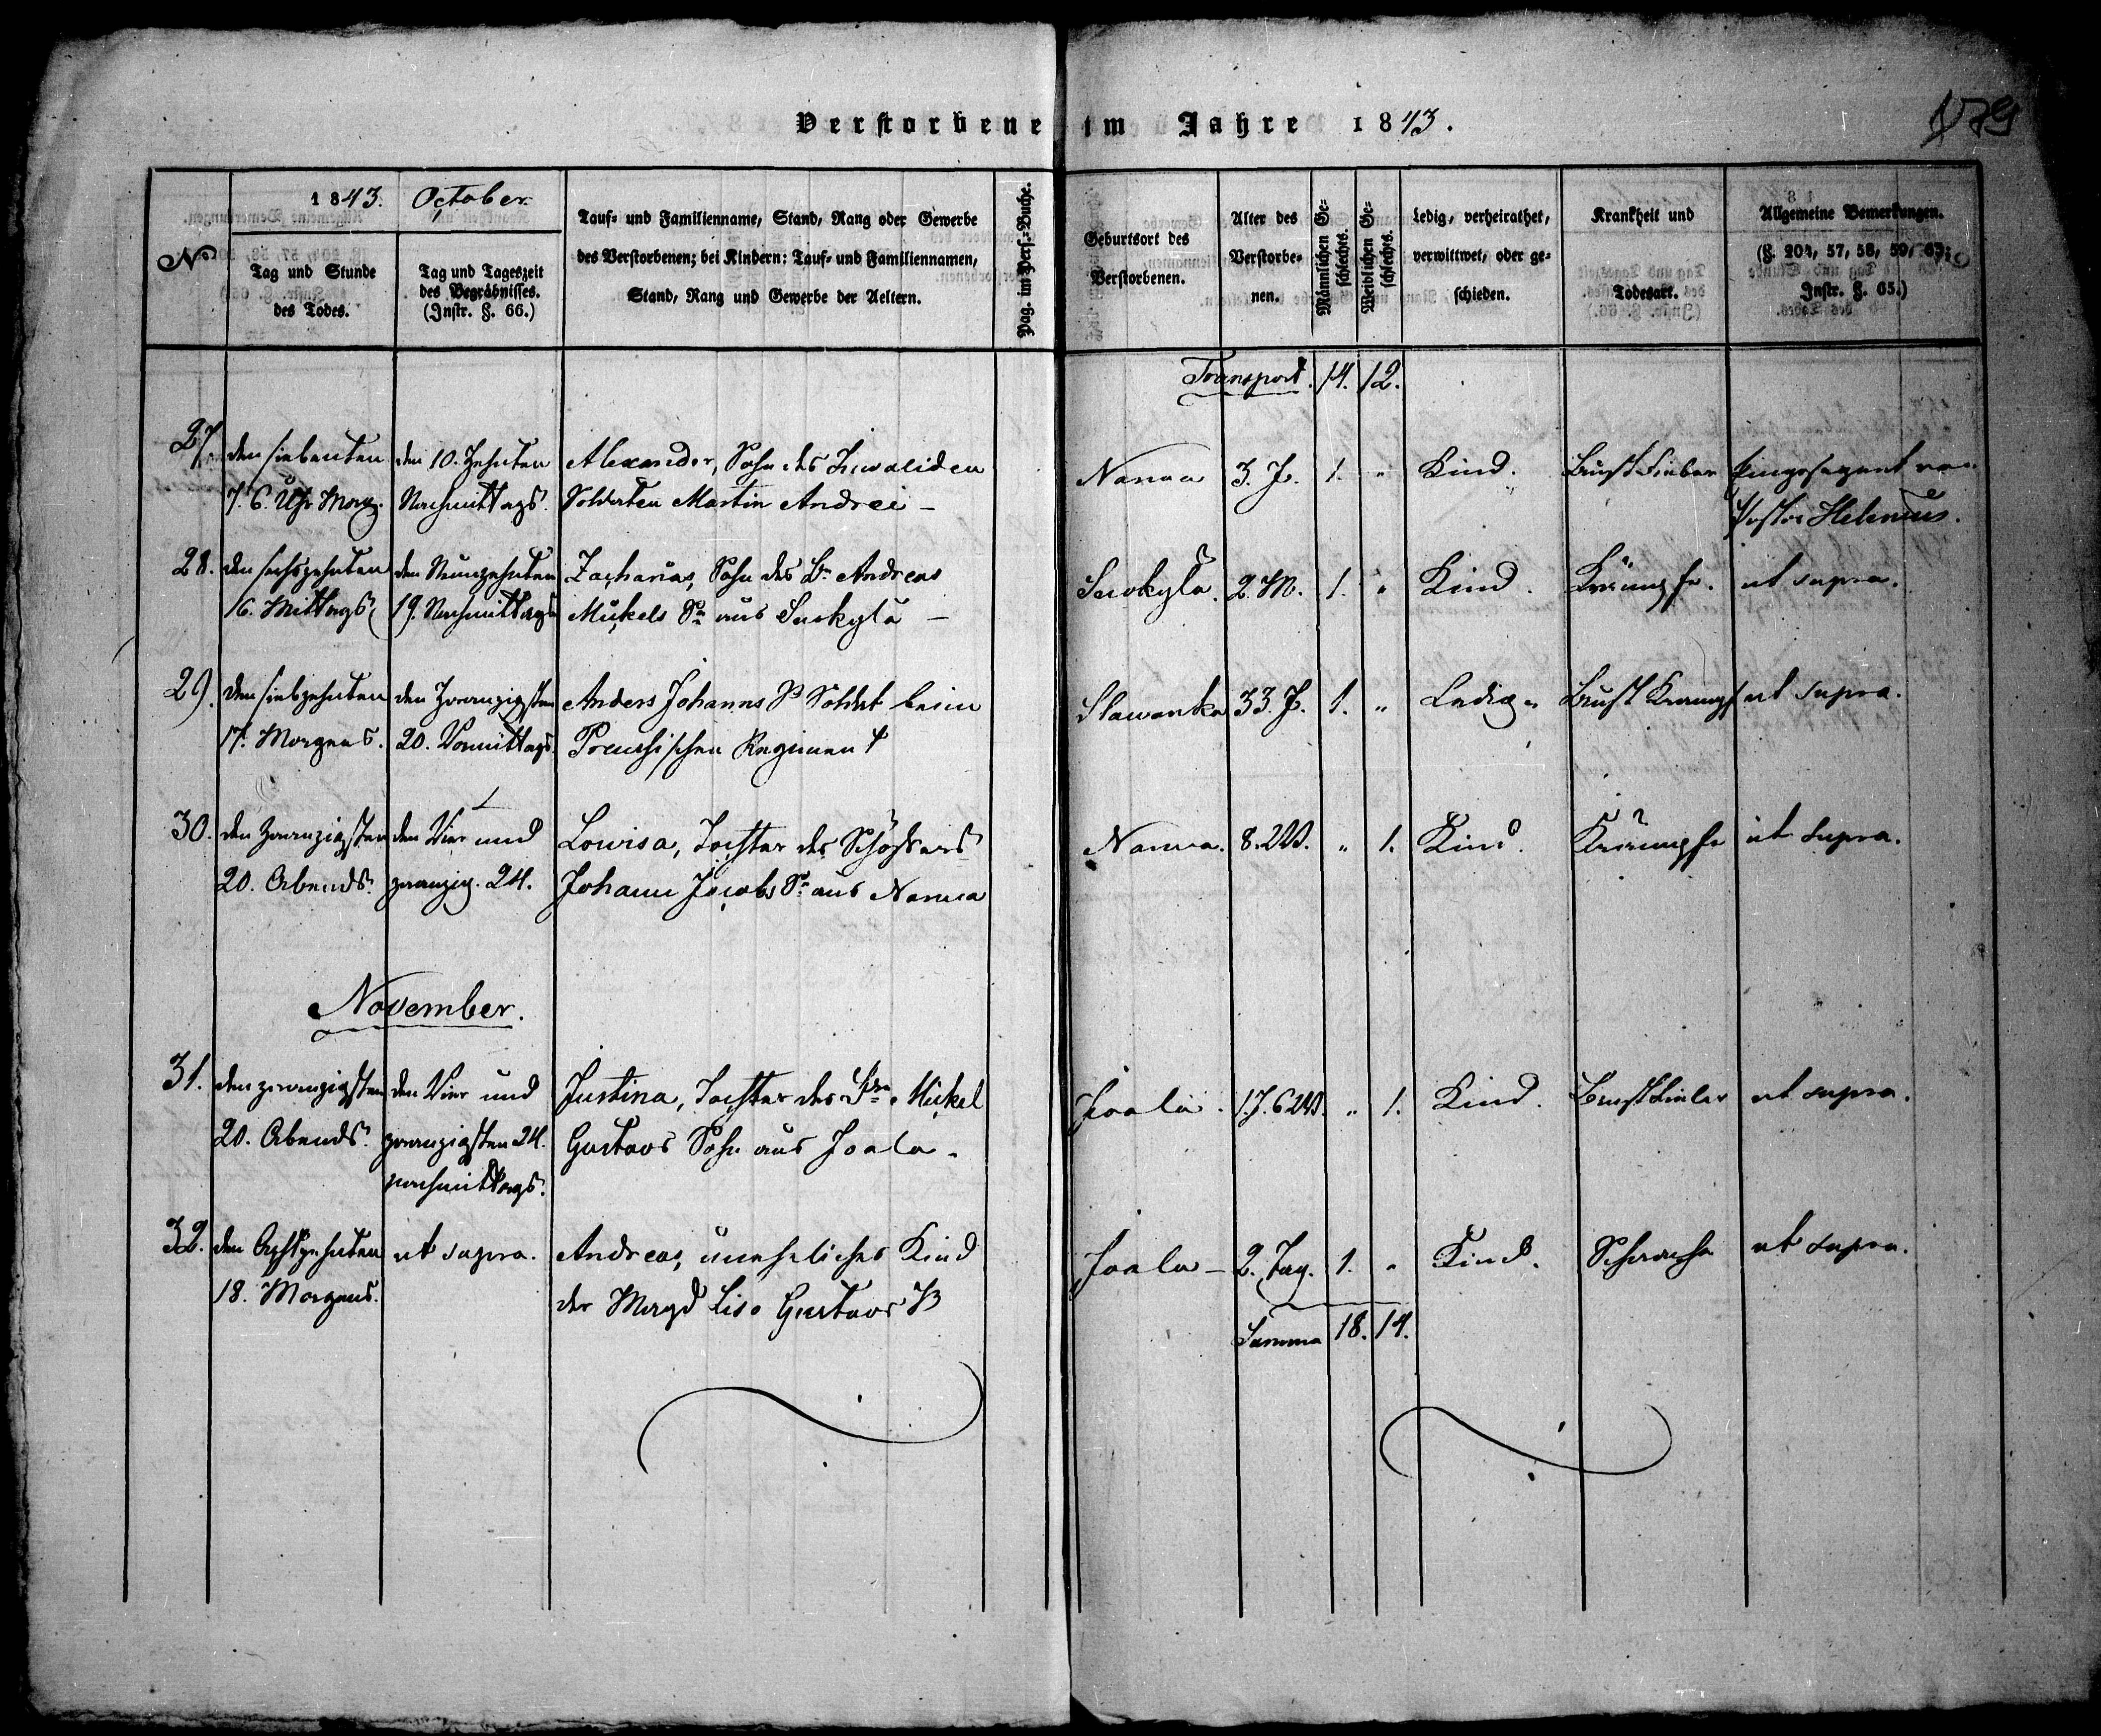 Verstorbene im Jahre 1843.
1843. October.
No.
Tag und Stunde
des Todes.
Tag und Tageszeit
des Begräbnisses.
(Instr. §. 66.)
Tauf- und Familienname, Stand, Rang oder Gewerbe
des Verstorbenen; bei Kindern: Tauf- und Familiennamen,
Stand, Rang und Gewerbe der Aeltern.
Pag. im Pers.-Buche.
Geburtsort des
Verstorbenen.
Alter des
Verstorbe-
nen.
Männlichen Ge-
schlechts.
Weiblichen Ge-
schlechts.
Ledig, verheirathet,
verwittwet, oder ge-
schieden.
Krankheit und
Todesart.
Allgemeine Bemerkungen.
(§. 204, 57, 58, 59, 63;
Instr. §. 65.)
Transport. 14. 12.
27. den siebenten den 10. Zehnten Alexander, Sohn des Invaliden Narwa 3. J. 1. " Kind. Brustfieber Eingesegnet von
7. 6. Uhr Morg. Nachmittags. Soldaten Martin Andrei – Pastor Helenius.
28. den sechszehnten den Neunzehnten Zacharias, Sohn des Br. Andreas 2. M. 1. " Kind. Krämpfe. ut supra.
16. Mittags 19. Nachmittags Mickels Sn. aus –
29. den siebzehnten den Zwanzigsten Anders Johanns S. Soldat beim Slawanka 33. J. 1. " Ledig. Brust Krampf ut supra.
17. Morgens. 20. Vormittags. Preussischen Regiment
30. den zwanzigsten den Vier und Lowisa, Tochter des Narwa. 8. " 1. Kind. Krämpfe ut supra.
20. Abends. zwanzig. 24. Johann Jacobs Sn. aus Narwa
November.
31. den zwanzigsten den Vier und Justina, Tochter des Mickel Joala. 1 J. 6 " 1. Kind. Brustfieber ut supra.
20. Abends. zwanzigsten 24. Gustavs Sohn aus Joala.
nachmittags.
32. den Achtzehnten ut supra. Andreas, uneheliches Kind Joala – 2. Tag. 1. " Kind. Schwäche ut supra.
18. Morgens. der Magd Liso Gustavs
Summa 18. 14.